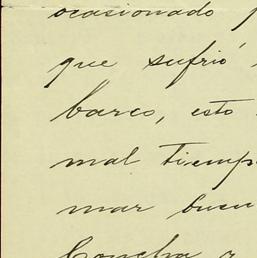 ocasionado p
que sufrió
barco, esto
mal tiemp
mar busu
Concha y